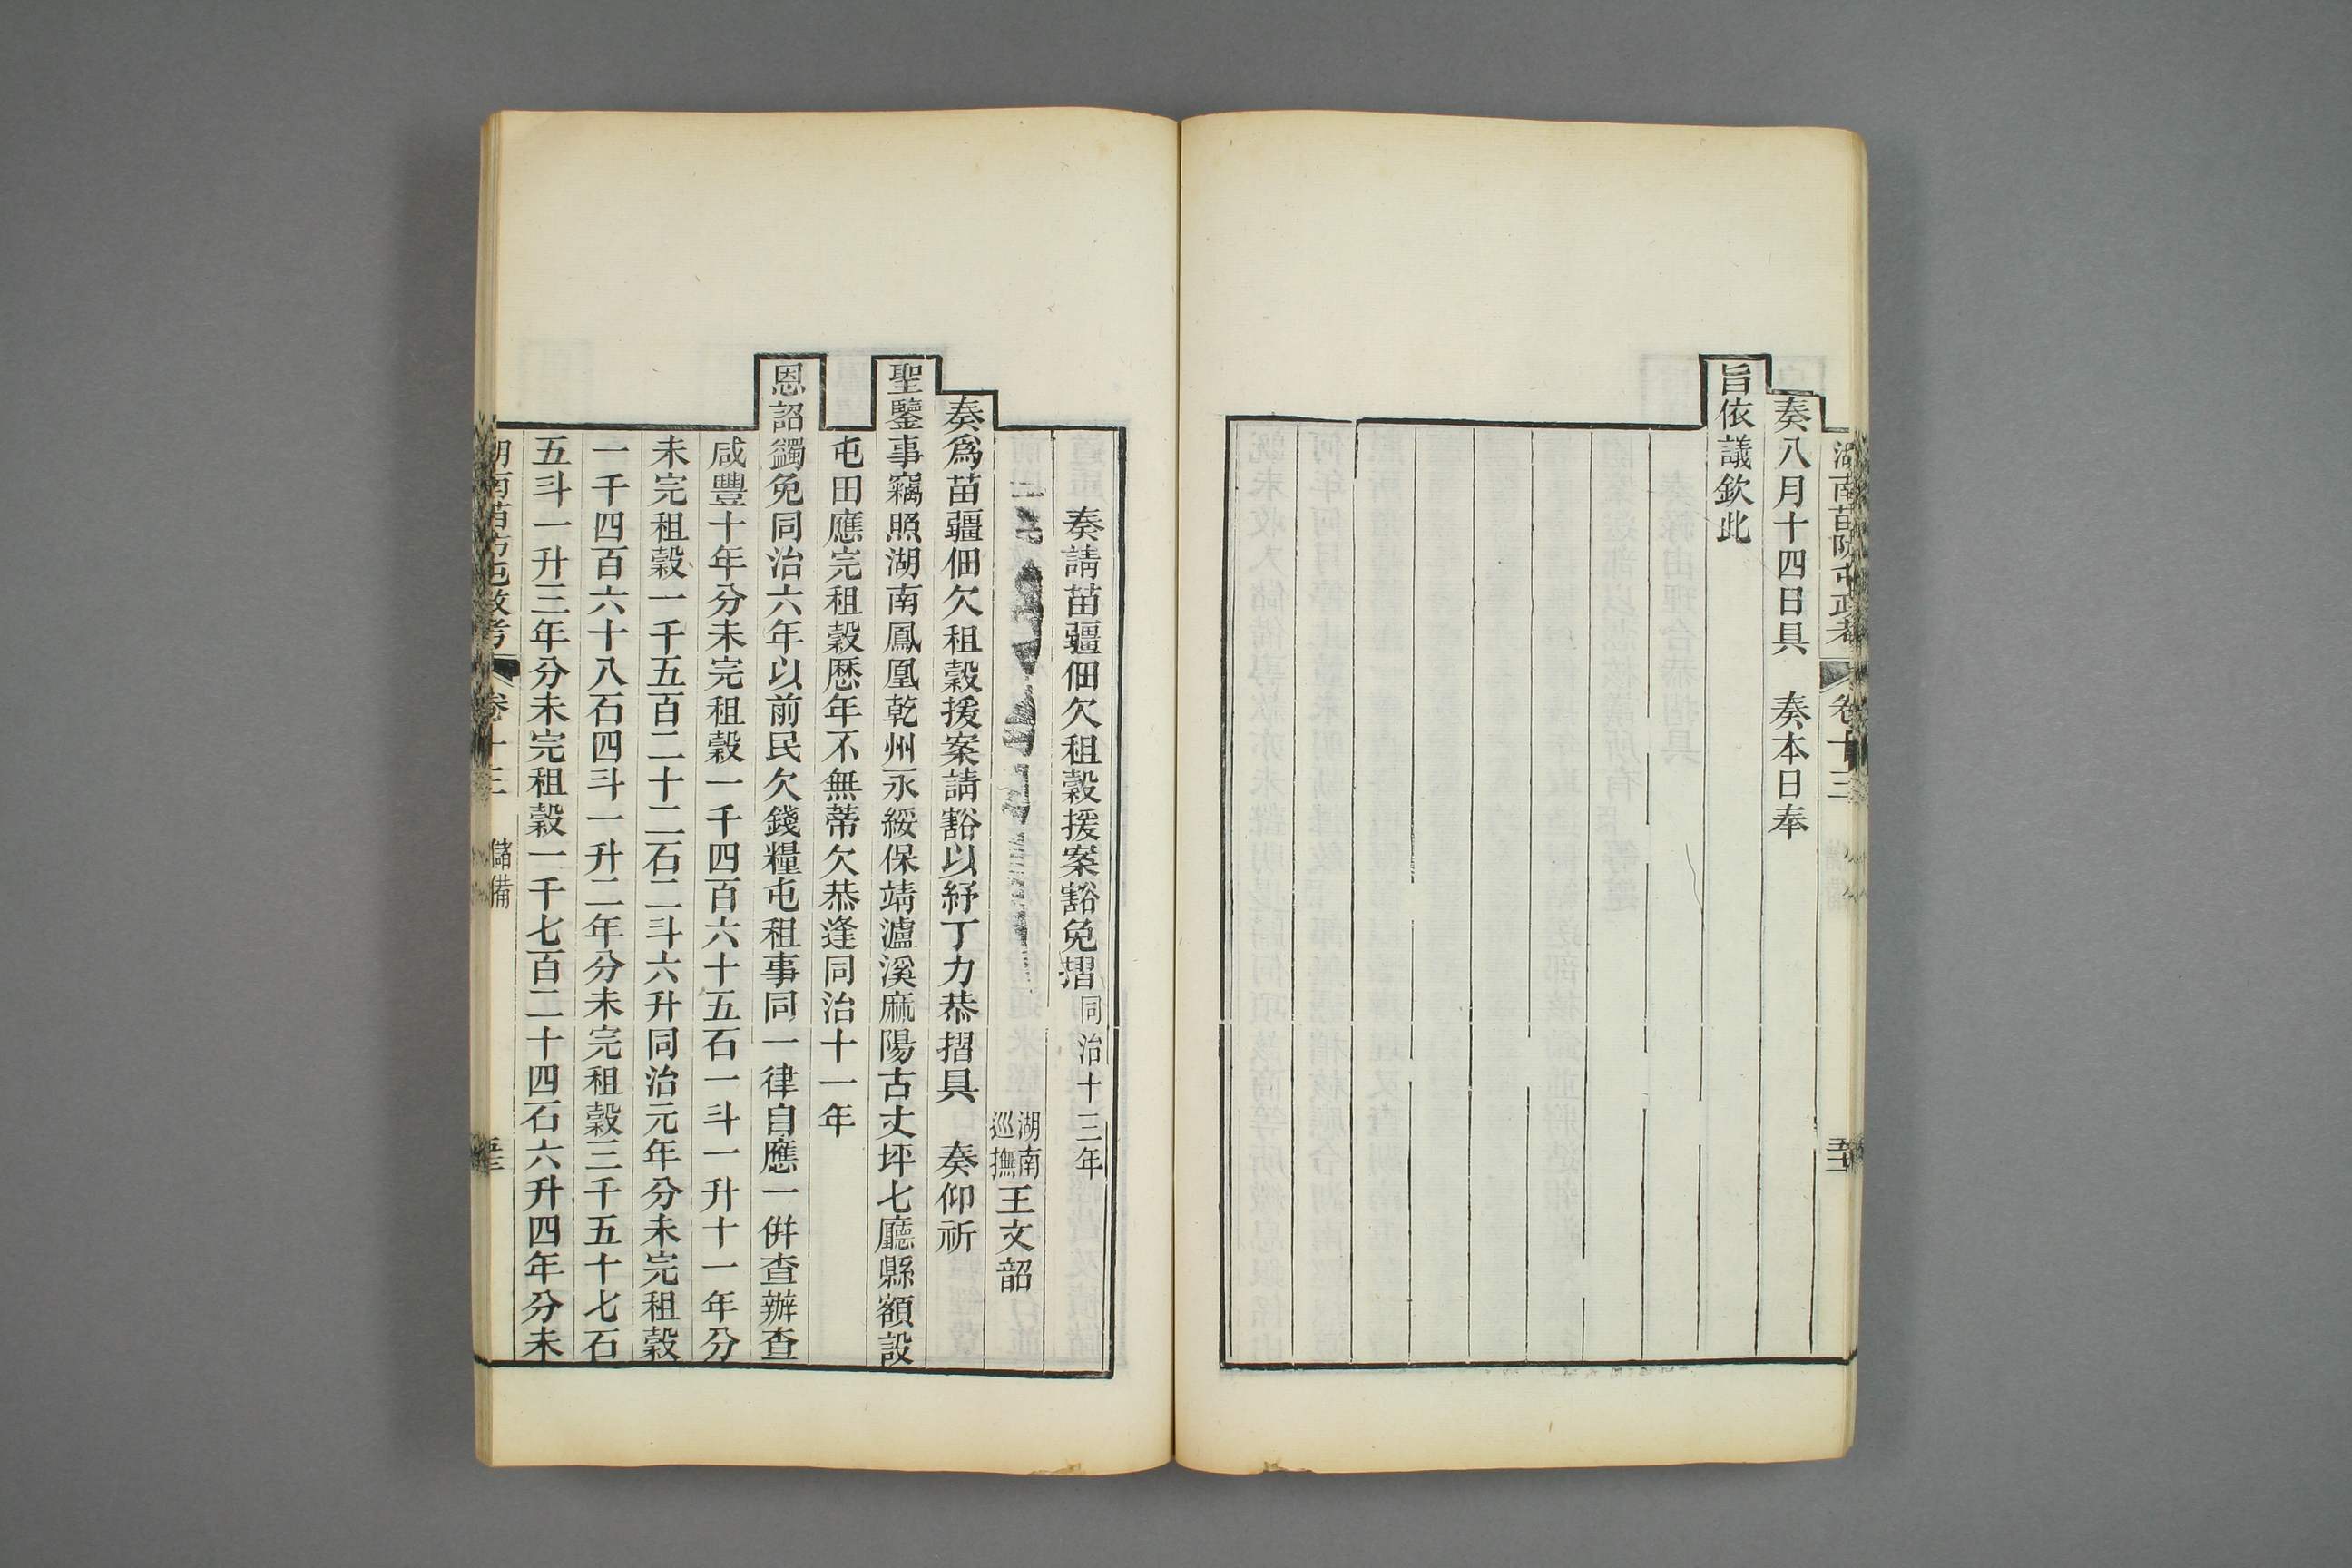 湖南苗防屯政考 卷十三
奏八月十四日具 奏本日奉
旨依議欽此
奏請苗疆佃欠租穀援案豁免摺同治十三年
湖南巡撫王文韶
奏爲苗疆佃欠租穀援案請豁以紓丁力恭摺具 奏仰祈
聖鑒事竊照湖南鳳凰乾州永綏保靖瀘溪麻陽古丈坪七廳縣額設
屯田應完租穀歷年不無蒂欠恭逢同治十一年
恩詔蠲免同治六年以前民欠錢糧屯租事同一律自應一併查辦查
咸豐十年分未完租穀一千四百六十五石一斗一升十一年分
未完租穀一千五百二十二石二斗六升同治元年分未完租穀
一千四百六十八石四斗一升二年分未完租穀三千五十七石
五斗一升三年分未完租穀一千七百二十四石六升四年分未
湖南苗防屯政考 卷十三 儲備